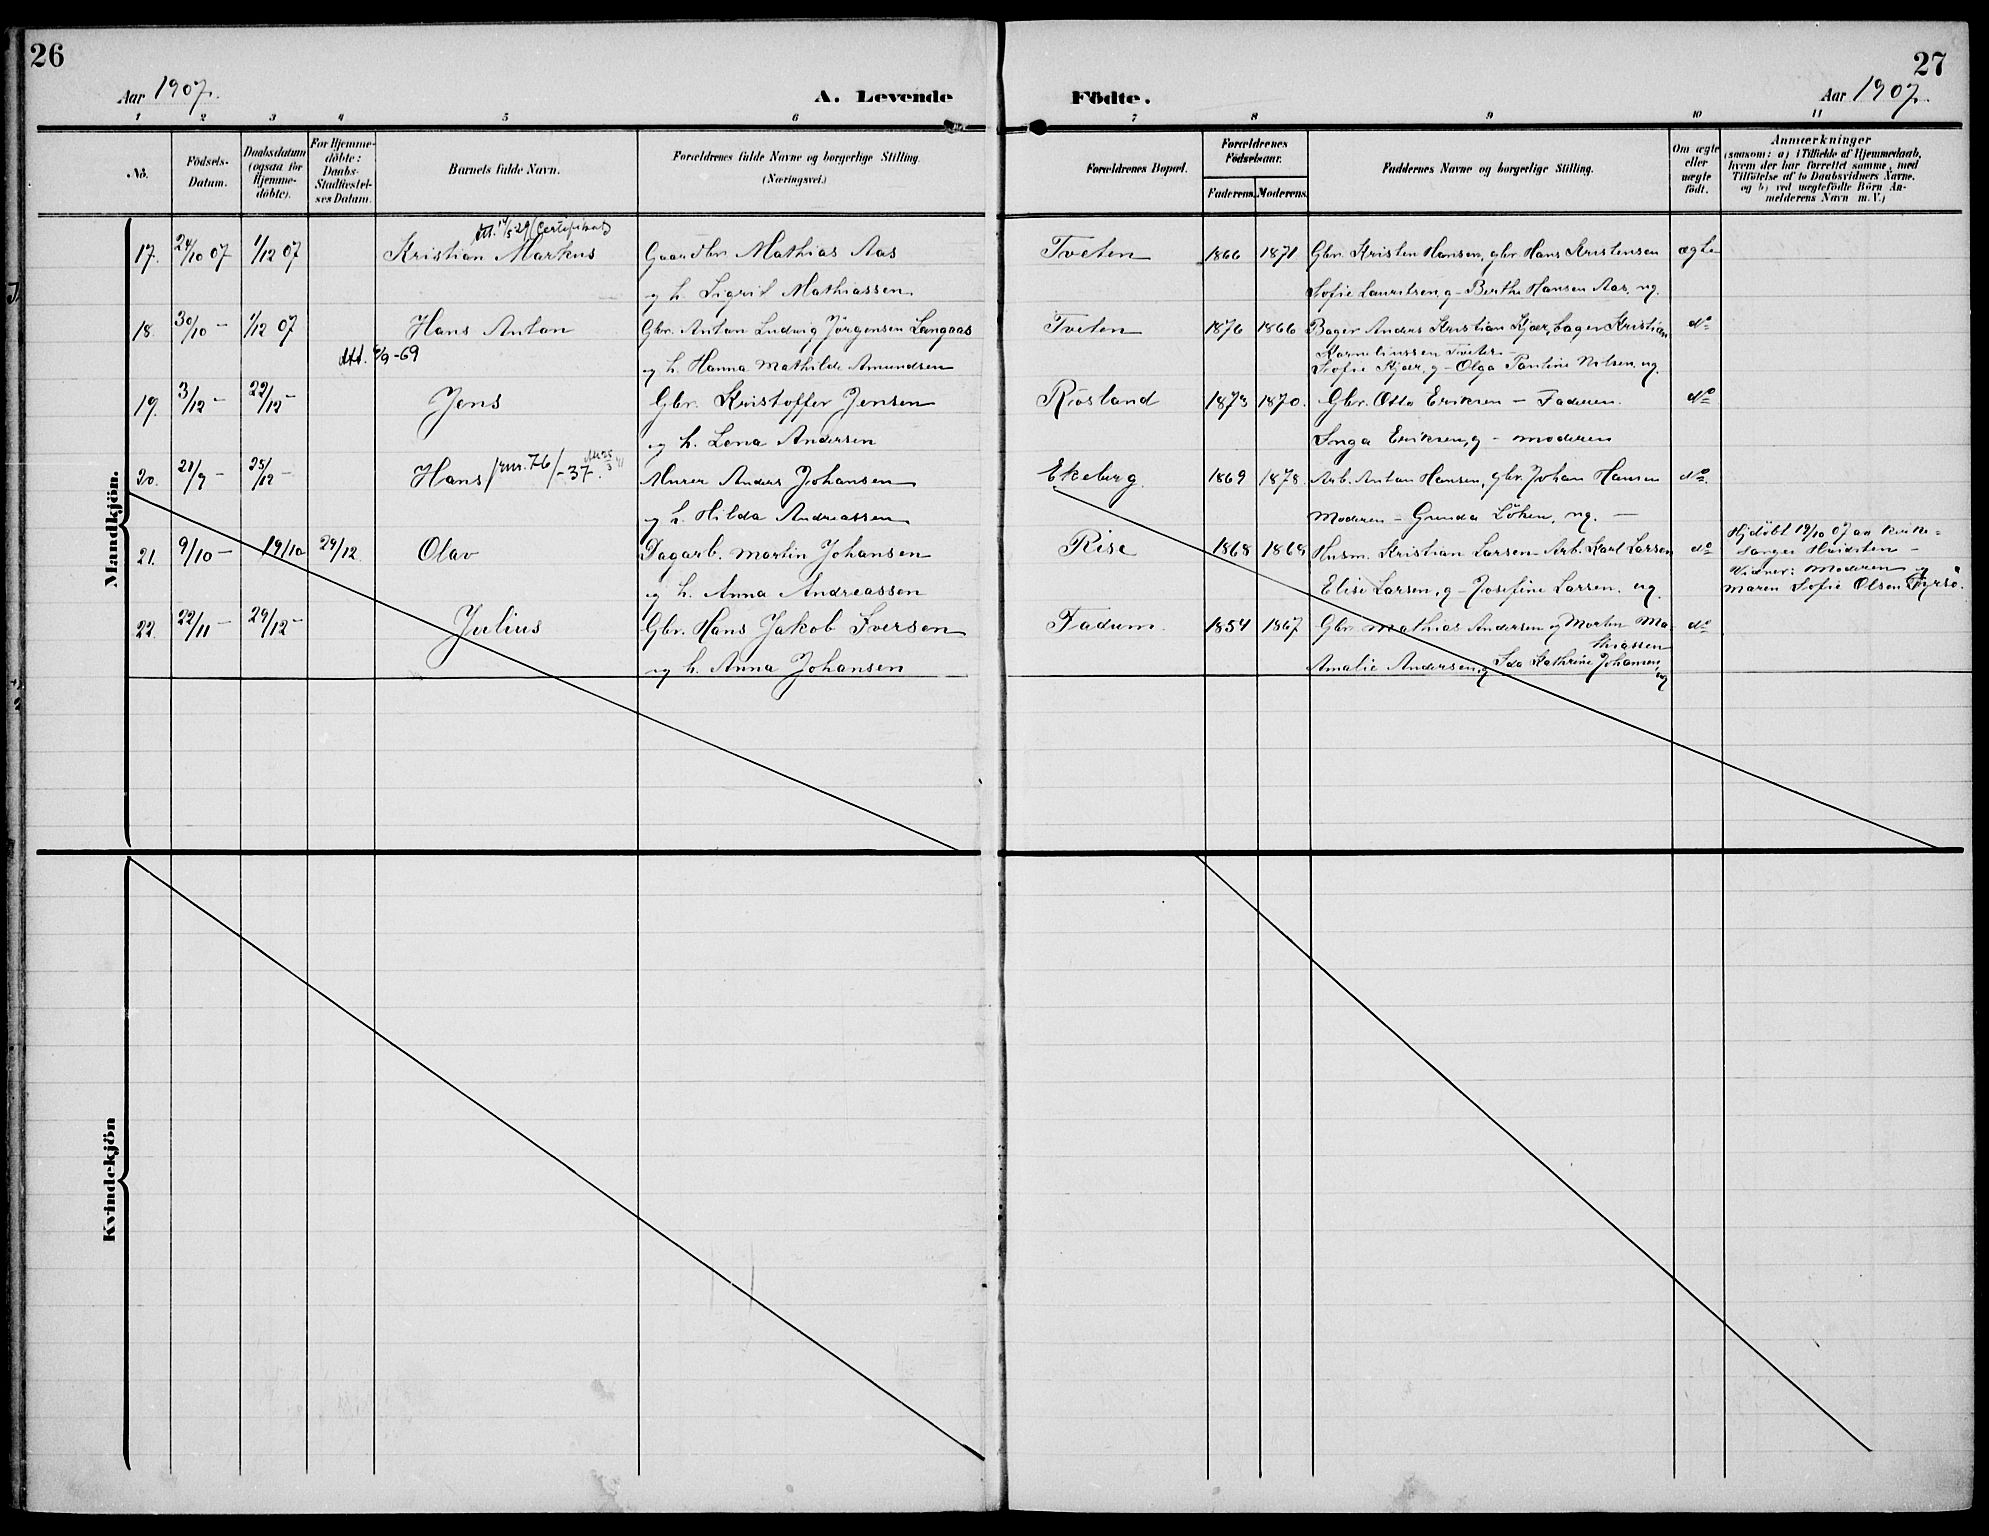 26
27
Aar 1907.
A. Levende
Födte.
Aar 1907.
1 2 3 4 5 6 7 8 9 10 11
No.
Födsels-Datum.
Daabsdatum (ogsaa för Hjemme-döbte).
For Hjemme-döbte: Daabs-Stadfæstel-ses Datum.
Barnets fulde Navn.
Forældrenes fulde Navne og borgerlige Stilling.
(Næringsvei.)
Forældrenes Bopæl.
Forældrenes Födselsaar.
Faderens. Moderens.
Faddernes Navne og borgerlige Stilling.
Om ægte eller uægte födt.
Anmærkninger
(saasom: a) i Tilfælde af Hjemmedaab,
hvem der har forrettet samme, med
Tilföielse af to Daabsvidners Navne,
og b) ved uægtefödte Börn An-
melderens Navn m. V.)
Mandkjön.
Att. 14/5 29 (Certifikat)
17. 24/10 07 1/12 07 Kristian Markus Gaardbr. Mathias Aas Tveten 1866 1871 Gbr. Kristen Hansen, gbr. Hans Kristensen ægte
og h. Sigrid Mathiassen Sofie Lauritsen, g - Berthe Hansen Aas, ug.
18. 30/10 - 1/12 07 Hans Anton Gbr. Anton Ludvig Jörgensen Langaas Tveten 1876 1866 Bager Anders Kristian Kjær, bager Kristian do
Att. 9/9-69 og h. Hanna Mathilde Amundsen Korneliussen Tveten
Sofie Kjær, g - Olga Pauline Nilsen, ug.
19. 3/12 - 22/12 - Jens Gbr. Kristoffer Jensen Rösland 1873 1870. Gbr. Otto Eriksen - Faderen. do
og h. Lena Andersen Inga Eriksen, g - moderen
20. 21/9 - 25/12 - Hans /jnr. 76/-37. Murer Anders Johansen Ekeberg 1869 1878. Arb. Anton Hansen, gbr. Johan Hansen do
og h. Hilda Andreassen Moderen - Gunda Löken, ug. -
21. 9/10 - 19/10 29/12 Olav Dagarb. Martin Johansen Rise 1868 1868 Husm. Kristian Larsen - Arb. Karl Larsen do Hjdöbt 19/10 07 av kirke-
sanger -
og h. Anna Andreassen Elise Larsen, g - Josefine Larsen, ug. Vidner: Moderen og
Maren Sofie Olsen
22. 22/11 - 29/12 - Julius Gbr. Hans Jakob Iversen Fadum 1854 1867 Gbr. Mathias Andersen og Martin Ma- do
thiassen
og h. Anna Johansen Amalie Andersen, g Ida Kathrine Johansen, ug
Kvindekjön